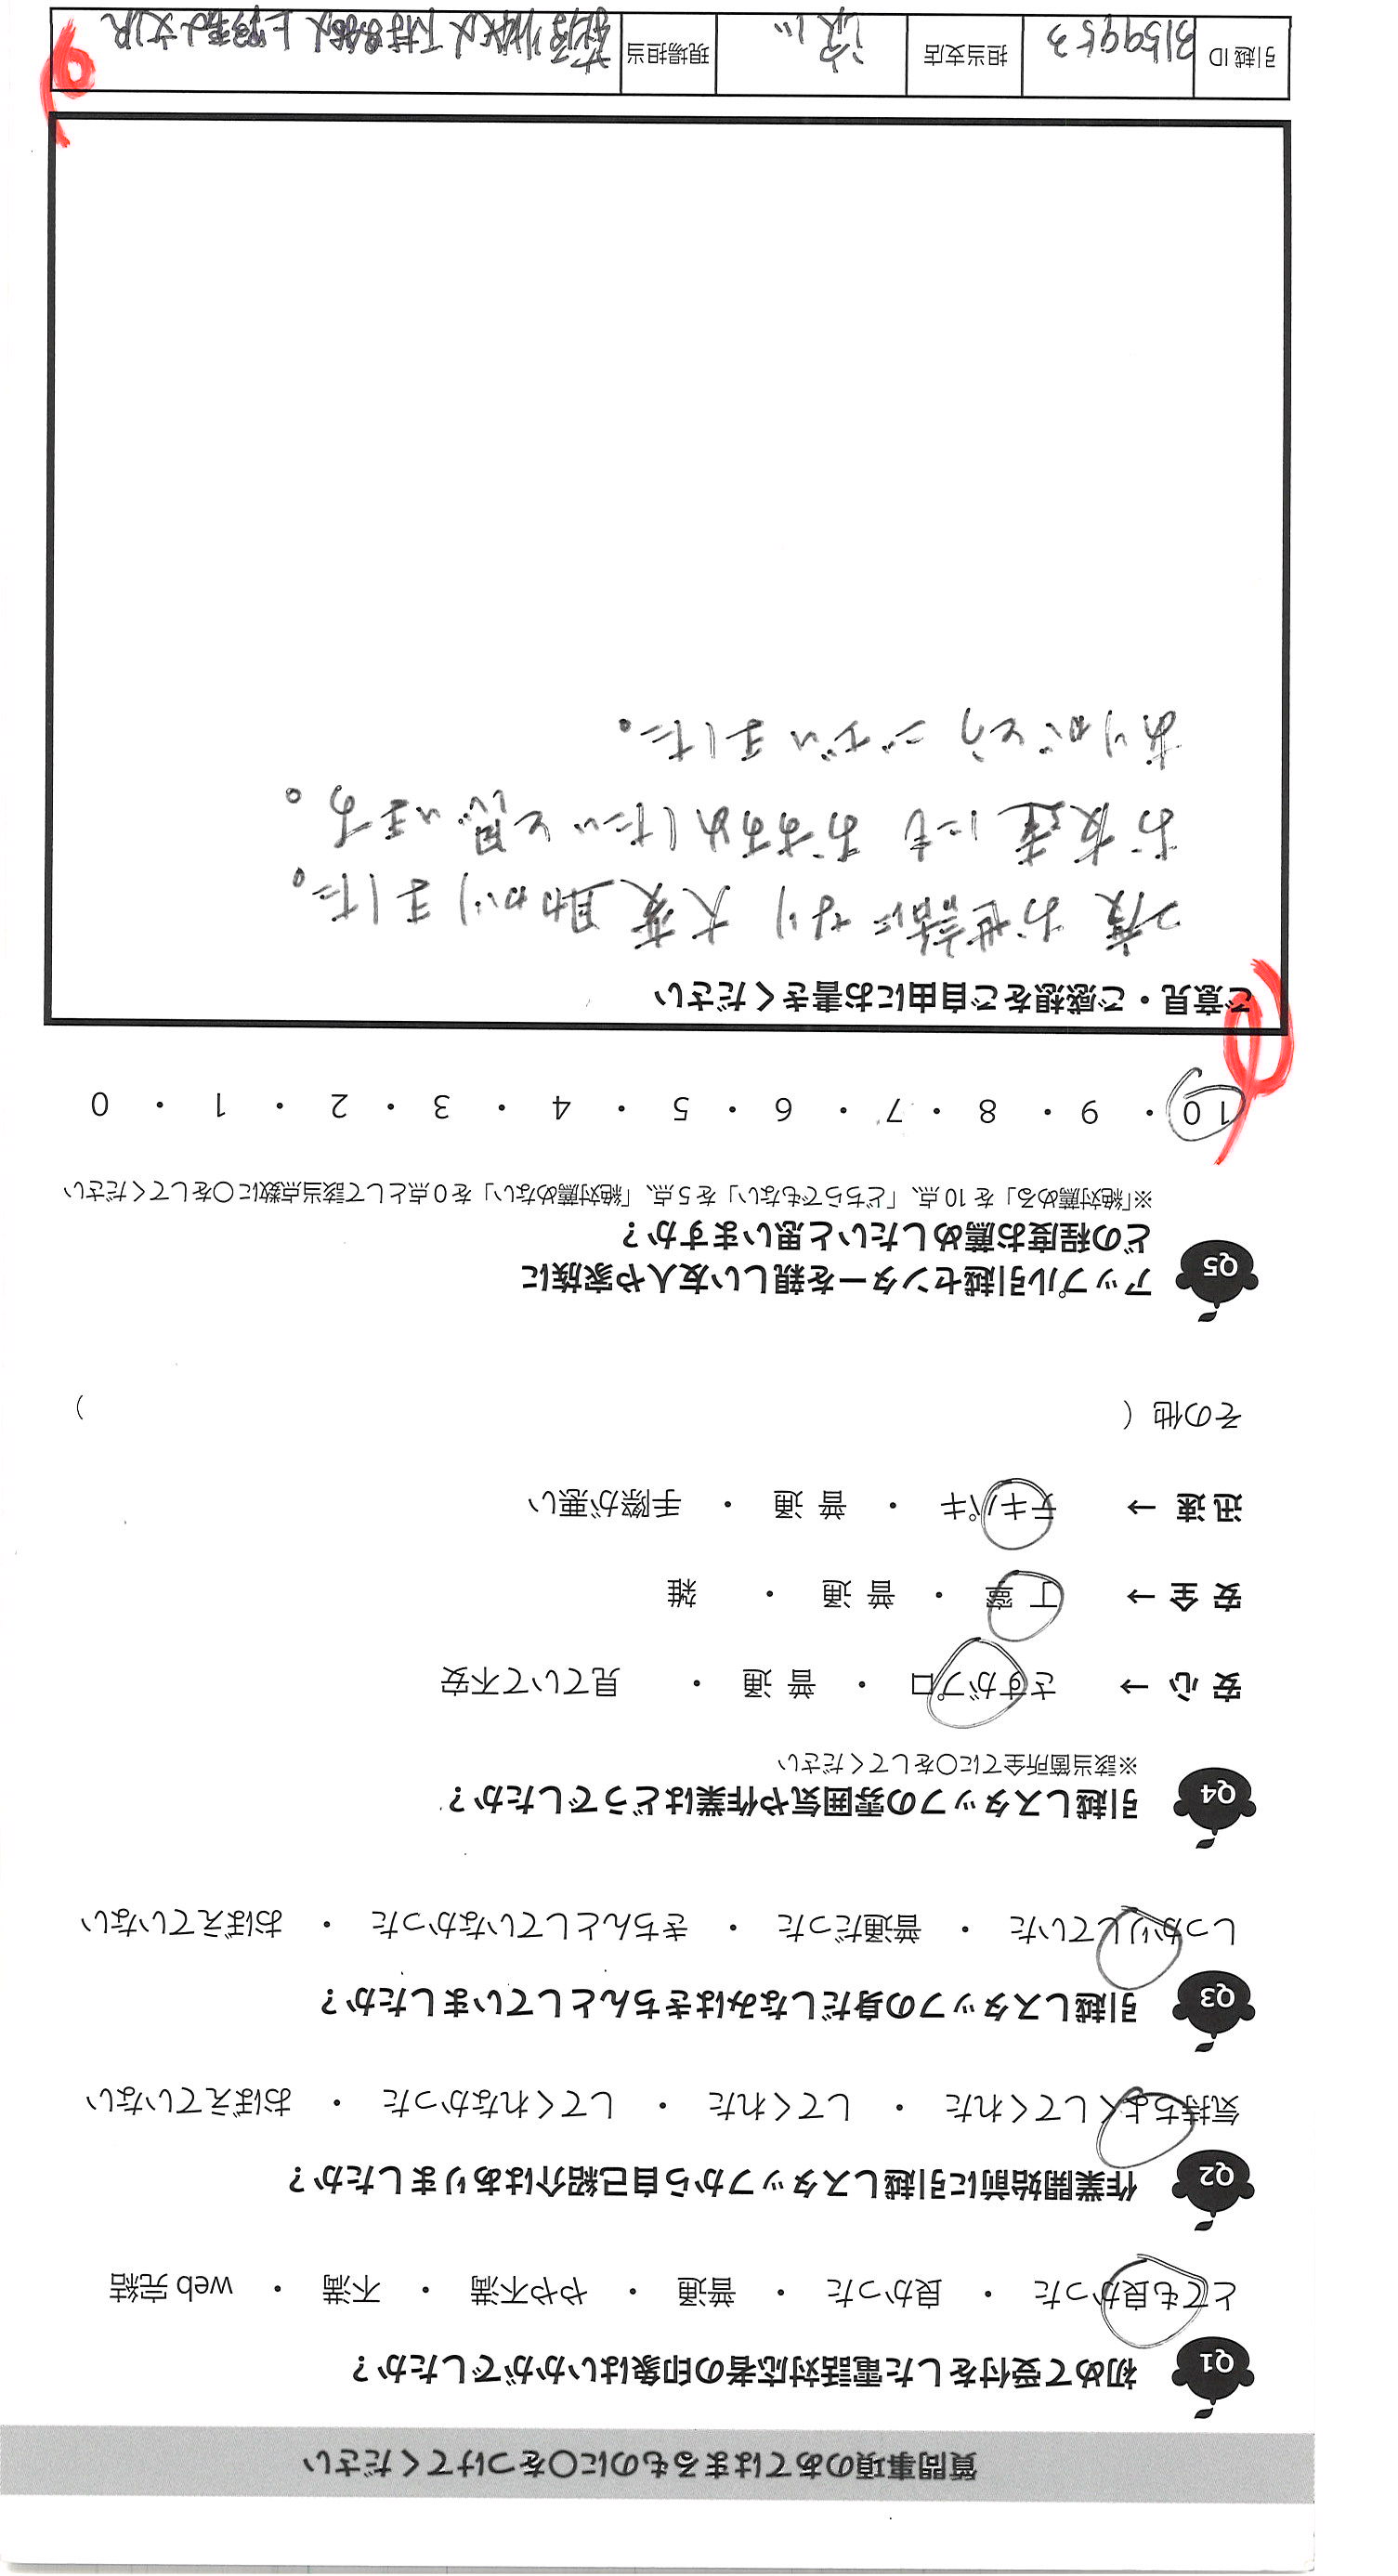 質問事項のあてはまるものに○をつけてください
Q1 初めて受付をした電話対応者の印象はいかがでしたか？
とても良かった ・ 良かった ・ 普通 ・ やや不満 ・ 不満 ・ web 完結
Q2 作業開始前に引越しスタッフから自己紹介はありましたか？
気持ちよくしてくれた ・ してくれた ・ してくれなかった ・ おぼえていない
Q3 引越しスタッフの身だしなみはきちんとしていましたか？
しっかりしていた ・ 普通だった ・ きちんとしていなかった ・ おぼえていない
Q4 引越しスタッフの雰囲気や作業はどうでしたか？
※該当箇所全てに○をしてください
安 心 → さすがプロ ・ 普 通 ・ 見ていて不安
安 全 → 丁 寧 ・ 普 通 ・ 雑
迅 速 → テキパキ ・ 普 通 ・ 手際が悪い
その他（ ）
Q5 アップル引越センターを親しい友人や家族に
どの程度お薦めしたいと思いますか？
※「絶対薦める」を 10 点、「どちらでもない」を 5 点、「絶対薦めない」を 0 点として該当点数に○をしてください
10 ・ 9 ・ 8 ・ 7 ・ 6 ・ 5 ・ 4 ・ 3 ・ 2 ・ 1 ・ 0
ご意見・ご感想をご自由にお書きください
2度 お世話になり 大変助かりました。
お友達にも おすすめしたいと思います。
ありがとうございました。
引越 ID 3159953 担当支店 現場担当